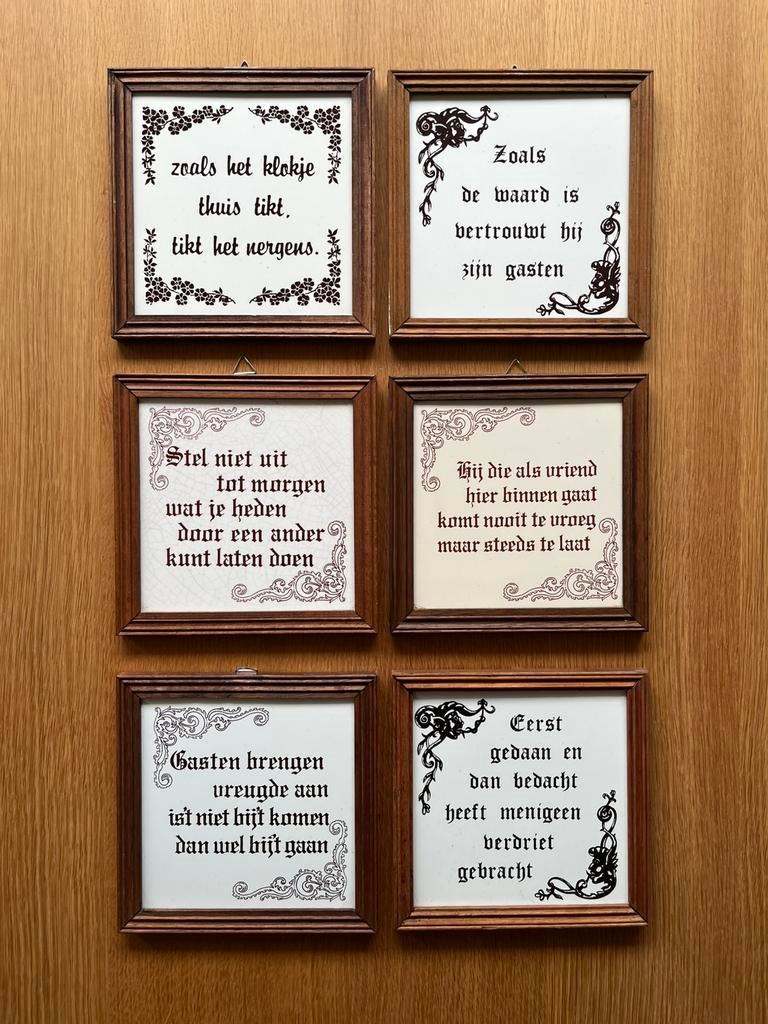 zoals het klokje
thuis tikt,
tikt het nergens.
Zoals
de waard is
vertrouwt hij
zijn gasten
Stel niet uit
tot morgen
wat je heden
door een ander
kunt laten doen
Hij die als vriend
hier binnen gaat
komt nooit te vroeg
maar steeds te laat
Gasten brengen
vreugde aan
is't niet bij't komen
dan wel bij't gaan
Eerst
gedaan en
dan bedacht
heeft menigeen
verdriet
gebracht